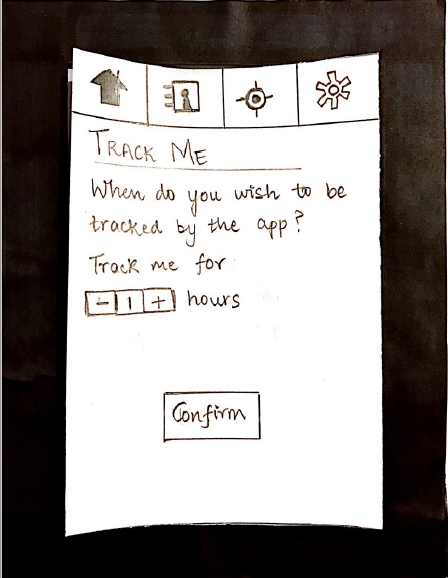 TRACK ME
When do you wish to be
tracked by the app?
Track me for
- 1 + hours
Confirm